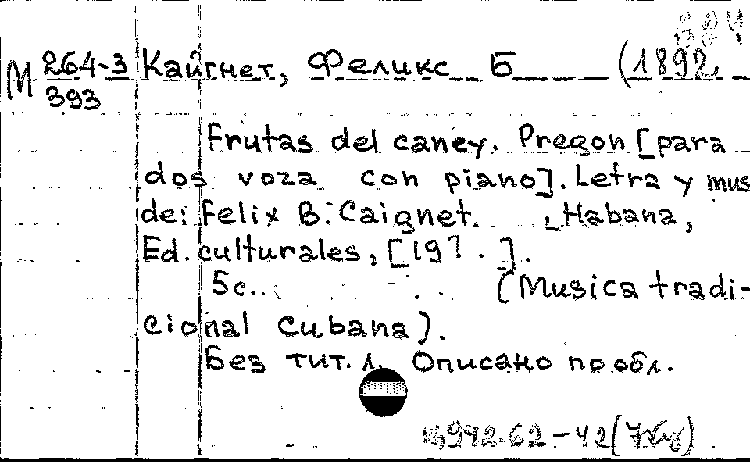 М 264-3 Кайгнет, Феликс Б (1892
393
Frutas del caney. Pregon [para
dos voza con piano]. Letra y mus
de: Felix B. Caignet. Habana,
Ed. culturales, [197 . ].
5с. (Musica tradi-
cional Cubana).
Без тит. л. Описано по обл.
942.62-42